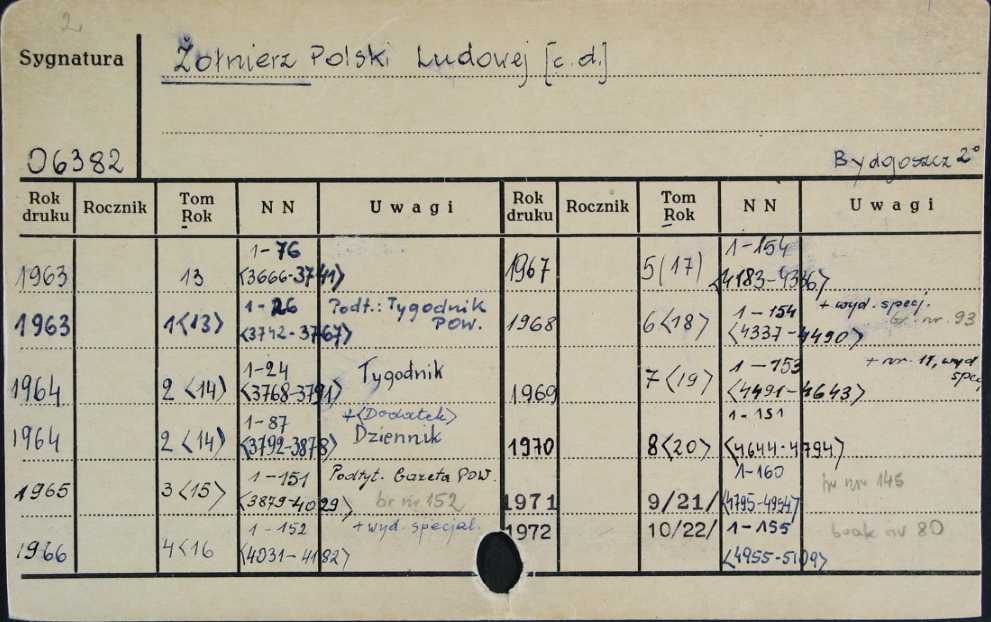 2
Sygnatura
Żołnierz Polski Ludowej [c.d.]
06382
Bydgoszcz 2°
Rok druku Rocznik Tom Rok NN Uwagi Rok druku Rocznik Tom Rok NN Uwagi
1963 13 1-76 <3666-3741>
1963 1<13> 1-26 <3742-3767> Podt.: Tygodnik POW.
1964 2<14> 1-24 <3768-3791> Tygodnik
+<Dodatek>
1964 2<14> 1-87 <3792-3878> Dziennik
1965 3<15> 1-151 <3879-4029> Podtyt. Gazeta POW.
br nr 152
1966 4<16 1-152 <4031-4182> +wyd. specjal.
1967 5(17) 1-154 <4183-4336>
1968 6<18> 1-154 <4337-4490> +wyd. specj.
br. nr. 93
1969 7<19> 1-153 <4491-4643> + nr. 11, wyd spec,
1970 8<20> 1-151 <4644-4794>
1971 9/21/ 1-160 <4795-4954> nr 145
1972 10/22/ 1-155 <4955-5109> brak nr 80